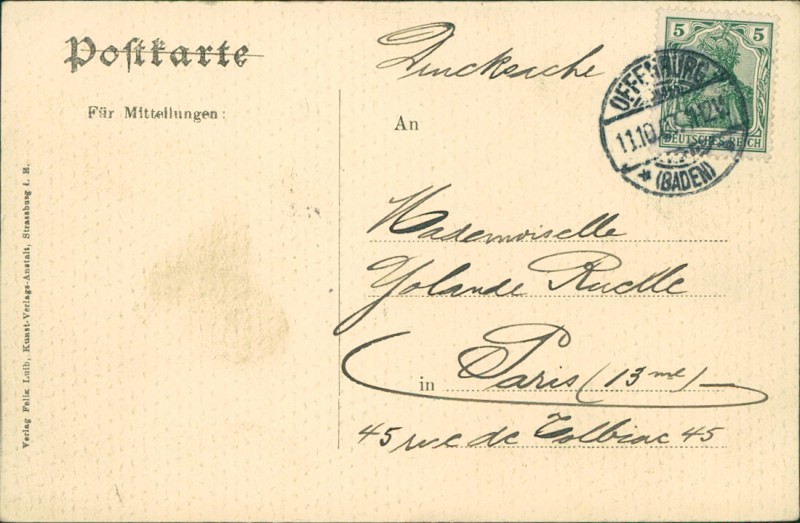 Postkarte
Für Mitteilungen:
Drucksache
An
5 5
DEUTSCHES REICH
OFFENBURG
11.10.
* (BADEN)
Mademoiselle
Yolande Ruelle
in Paris (13me)
45 rue de Tolbiac 45
Verlag Felix Luib, Kunst-Verlags-Anstalt, Strassburg i. E.